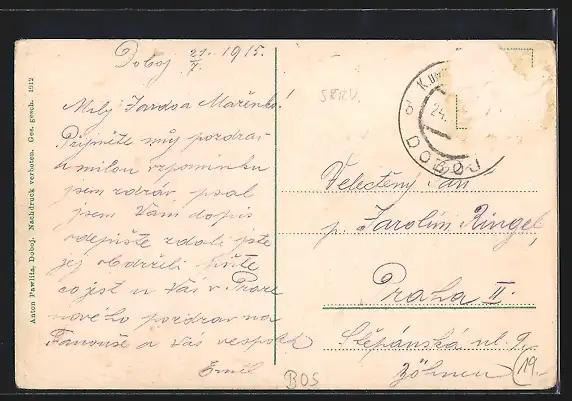 Doboj 21/V. 1915.
Milý Jardo a Mařenko!
Přijměte můj pozdrav
a milou vzpomínku
jsem zdráv, psal
jsem Vám dopis
odepište zdali jste
jej obdrželi pište
co jest u Vás v Praze
nového pozdrav na
a Vás
Emil
SRRV.
K. u
24.
DOBOJ
Velectěný Pán
p. Jarolím Ringel,
Praha II.
Štěpánská ul. 9.
Böhmen
19.-
BOS
Anton Pawlita, Doboj. Nachdruck verboten. Ges. gesch. 1912